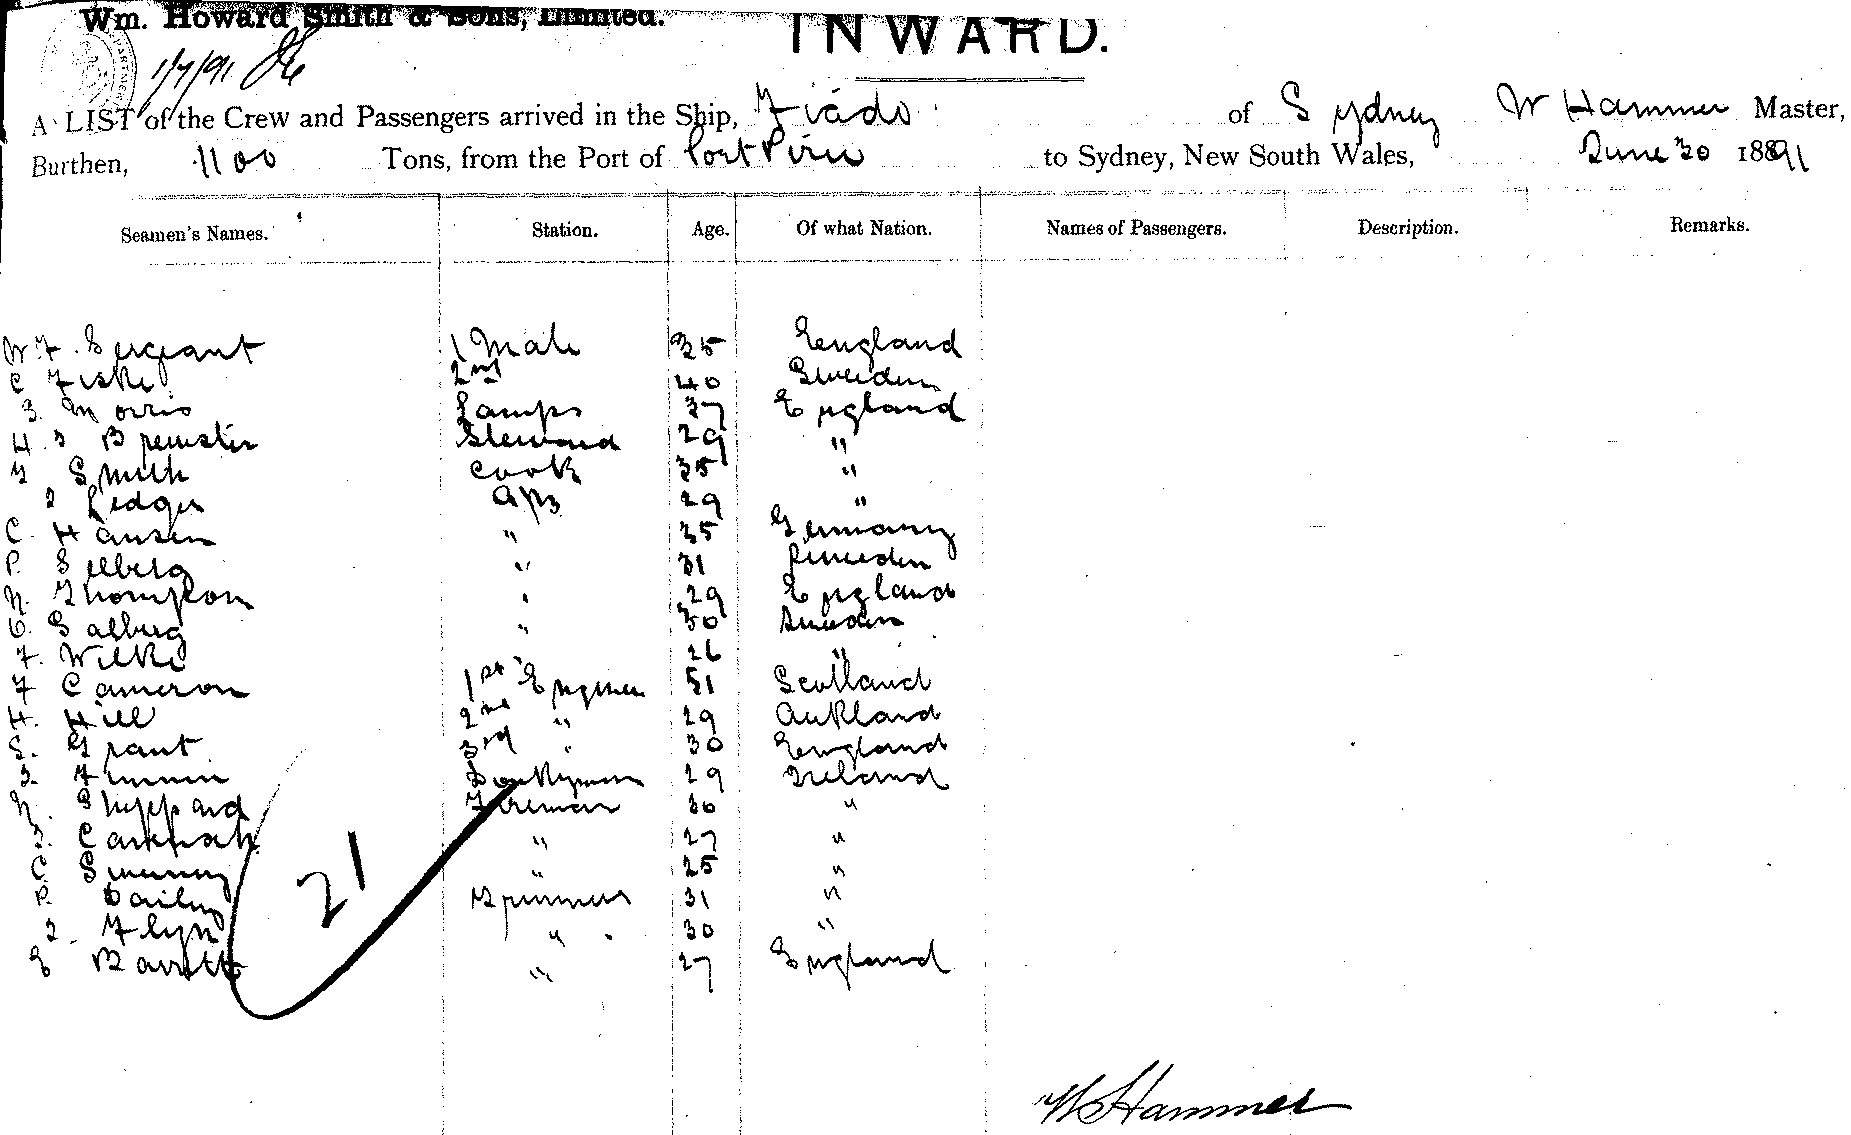 Wm. Howard Smith & Sons, Limited.
INWARD.
1/7/91
A LIST of the Crew and Passengers arrived in the Ship, of Sydney W Hammer Master,
Burthen, 1100 Tons, from the Port of Port Pirie to Sydney, New South Wales, June 30 1891
Seamen's Names. Station. Age. Of what Nation. Names of Passengers. Description. Remarks.
W. F. Sergeant 1 Mate 35 England
C Fiske 2nd 40 Sweden
J. Morris Lamps 37 England
H. J Brewster Steward 29 "
Smith Cook 35 "
J Ledger A/B 29 "
C. Hansen " 25 Germany
P. Selberg " 31 Sweden
N. Thompson " 29 England
Salberg " 30 Sweden
F. Wilke 26 "
F Cameron 1st Engineer 51 Scotland
H. Hill 2nd " 29 Aukland
S. Grant 3rd " 30 England
J. Donkyman 29 Ireland
N. Sheppard Fireman 30 "
J. " 27 "
C. Sweeney " 25 "
P. Trimmers 31 "
J. Flyn " 30 "
E Barrett " 27 England
21
W Hammer